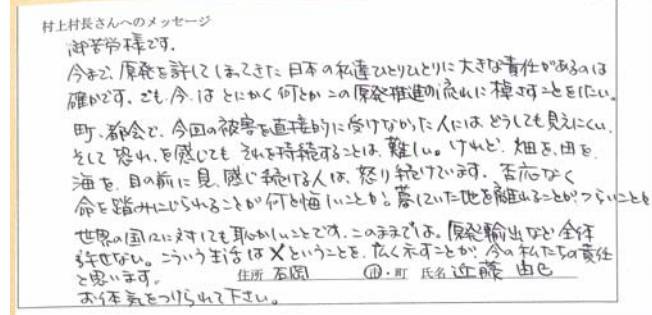 村上村長さんへのメッセージ
御苦労様です。
今まで、原発を許してしまってきた日本の私達ひとりひとりに大きな責任があるのは
確かです。でも、今はとにかく何とかこの原発推進の流れに棹さすことをしたい。
町、都会で、今回の被害を直接的に受けなかった人にはどうしても見えにくい、
そして恐れを感じてもそれを持続することは、難しい。けれど、畑を、田を、
海を、目の前に見、感じ続ける人は、怒り続けています。否応なく
命を踏みにじられることが何と悔しいことか。暮していた地を離れることがつらいことを
世界の国々に対しても恥かしいことです。このままでは。原発輸出など全体
許せない。こういう生活は×ということを、広く示すことが、今の私たちの責任
と思います。
住所 石岡 市・町 氏名 近藤 由己
お体気をつけられて下さい。